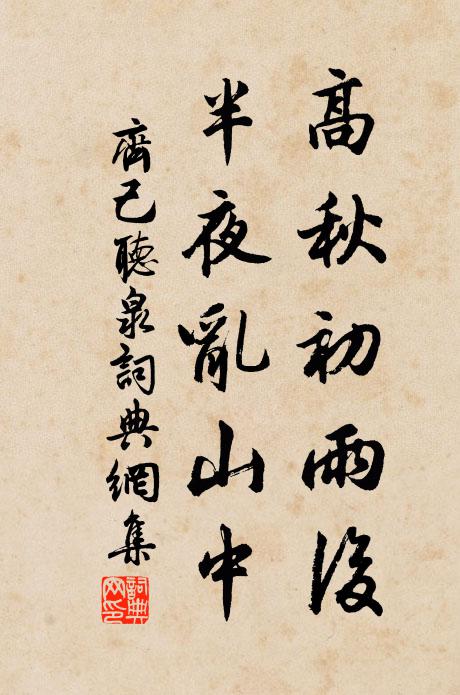 高秋初雨後
半夜亂山中
齊己聽泉詞典網集
詞典網印